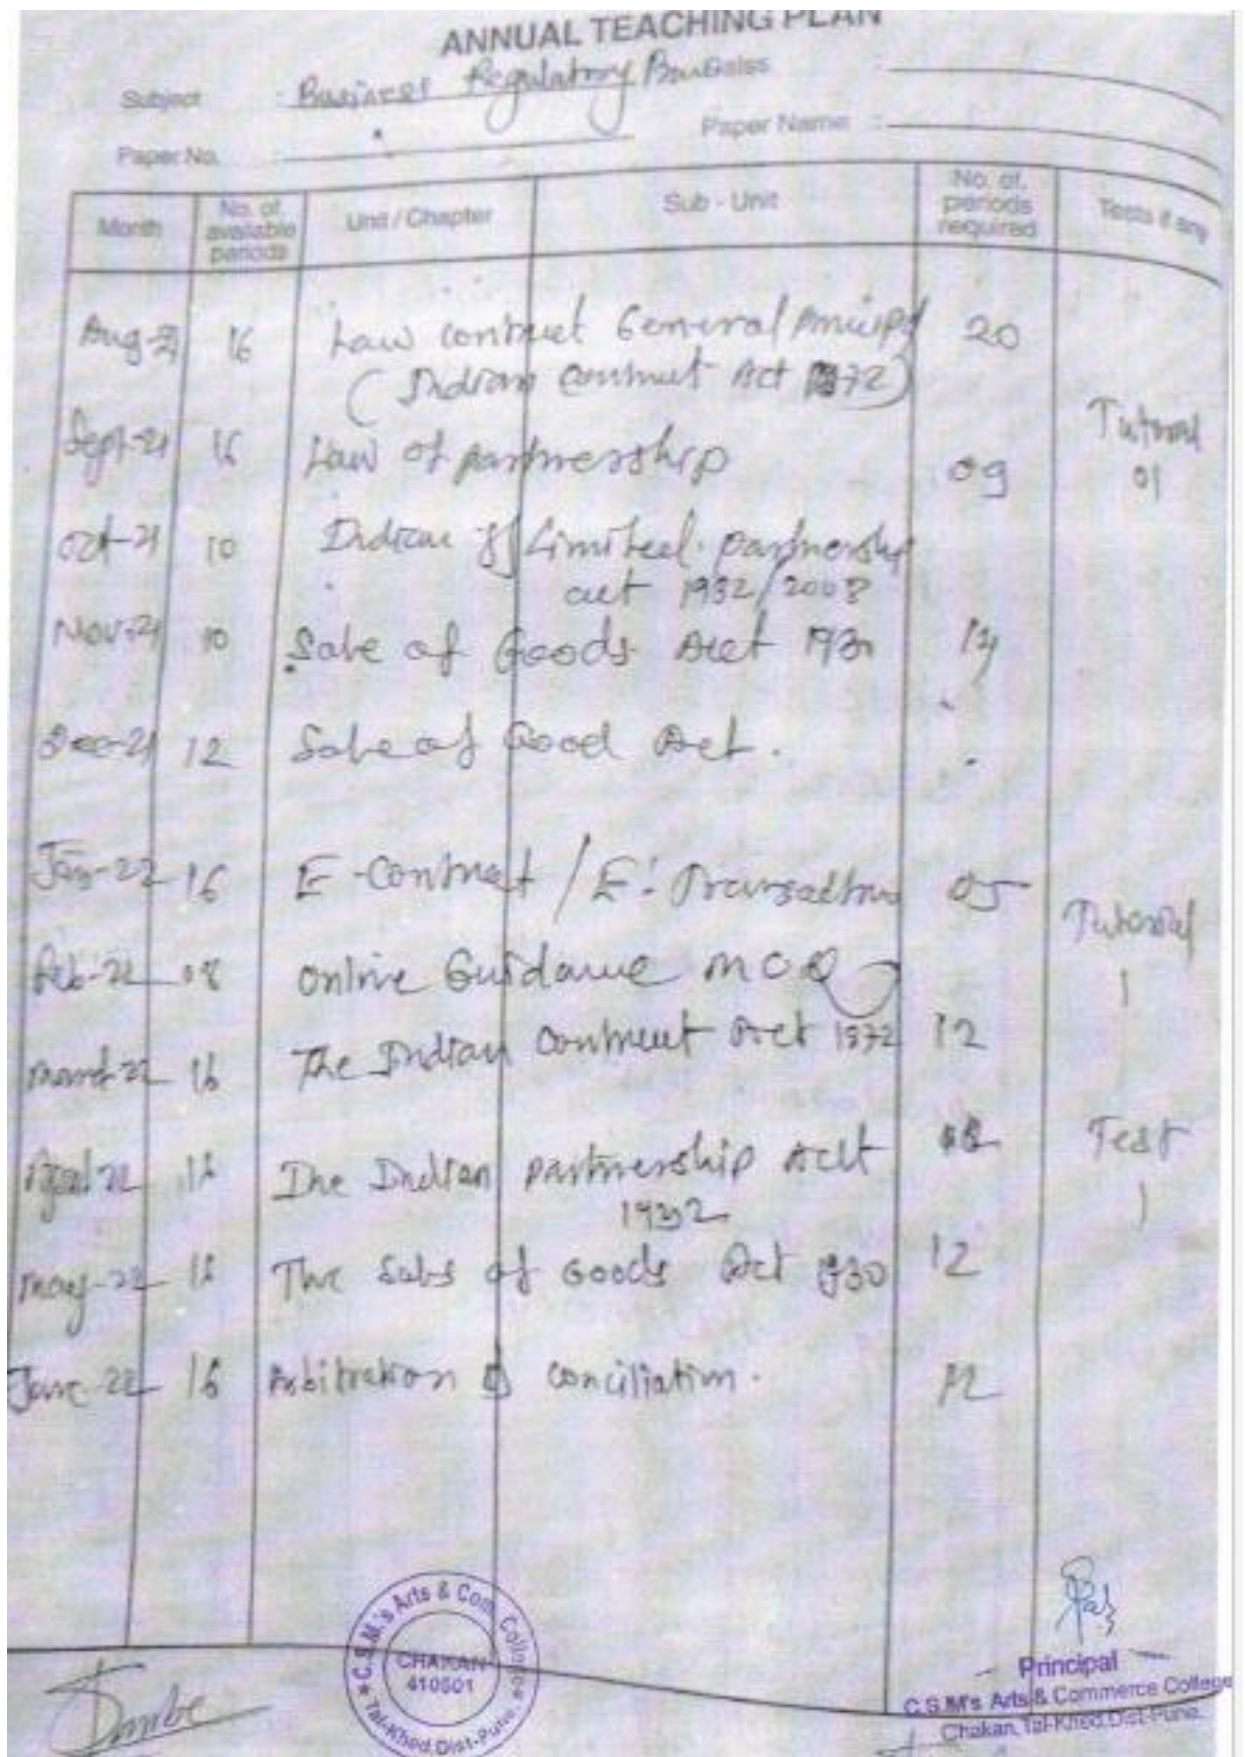 ANNUAL TEACHING PLAN
Subject : Business Regulatory
Paper No. : Paper Name :
Month No. of available periods Unit / Chapter Sub - Unit No. of. periods required Tests if any
Aug-21 16 Law contract General 20
(Indian Contract Act 1872)
Sept-21 16 Law of partnership 09 Tutorial 01
Oct-21 10 Indian Limited partnership
act 1932/2008
Nov-21 10 Sale of Goods Act 1930
Dec-21 12 Sale of Good Act.
Jan-22 16 E-Contract / E. Transaction 05
Tutorial
Feb-22 08 Online Guidance MCQ 1
March 22 16 The Indian Contract Act 1872 12
April 22 The Indian partnership Act Test
1932 1
May-22 The Sales of Goods Act 1930 12
June-22 16 Arbitration & conciliation. 12
C.S.M.'s Arts & Com. College
CHAKAN
410501
Tal-Khed, Dist-Pune.
Principal
C.S.M's Arts & Commerce College
Chakan, Tal-Khed, Dist-Pune.